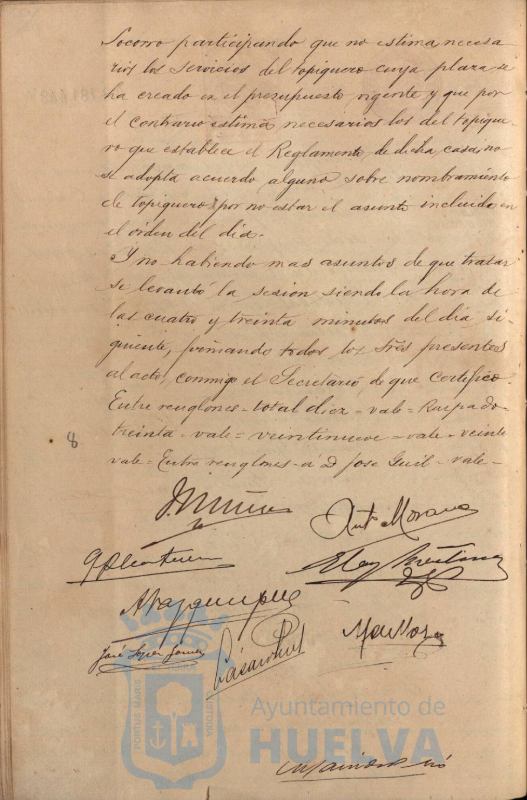 Socorro participando que no estima necesa
rios los servicios del topiquero cuya plaza se
ha creado en el presupuesto vigente y que por
el contrario estima necesarios los del topique
ro que establece el Reglamento de dicha casa, no
se adopta acuerdo alguno sobre nombramiento
de topiquero por no estar el asunto incluido en
el orden del dia.
Y no habiendo mas asuntos de que tratar
se levantó la sesion siendo la hora de
las cuatro y treinta minutos del dia si-
guiente, firmando todos los Sres presentes
al acto, conmigo el Secretario, de que certifico.
Entre renglones - total diez - vale = Raspado -
treinta - vale = veintinueve = vale - veinte
8
vale = Entre renglones - a D Jose Guil - vale -
Ant. Morano
José
PORTUS MARIS
CUSTODIA
Ayuntamiento de
HUELVA